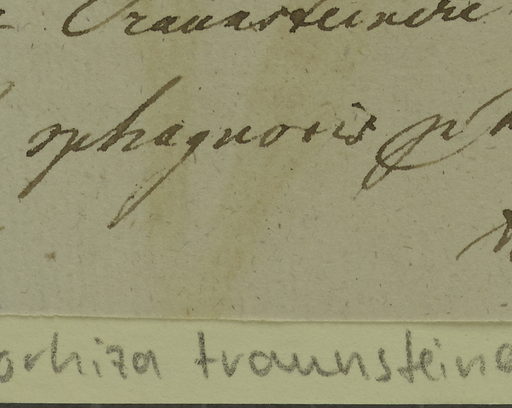 Traunsteineri
sphagnosis p
orhiza traunsteine